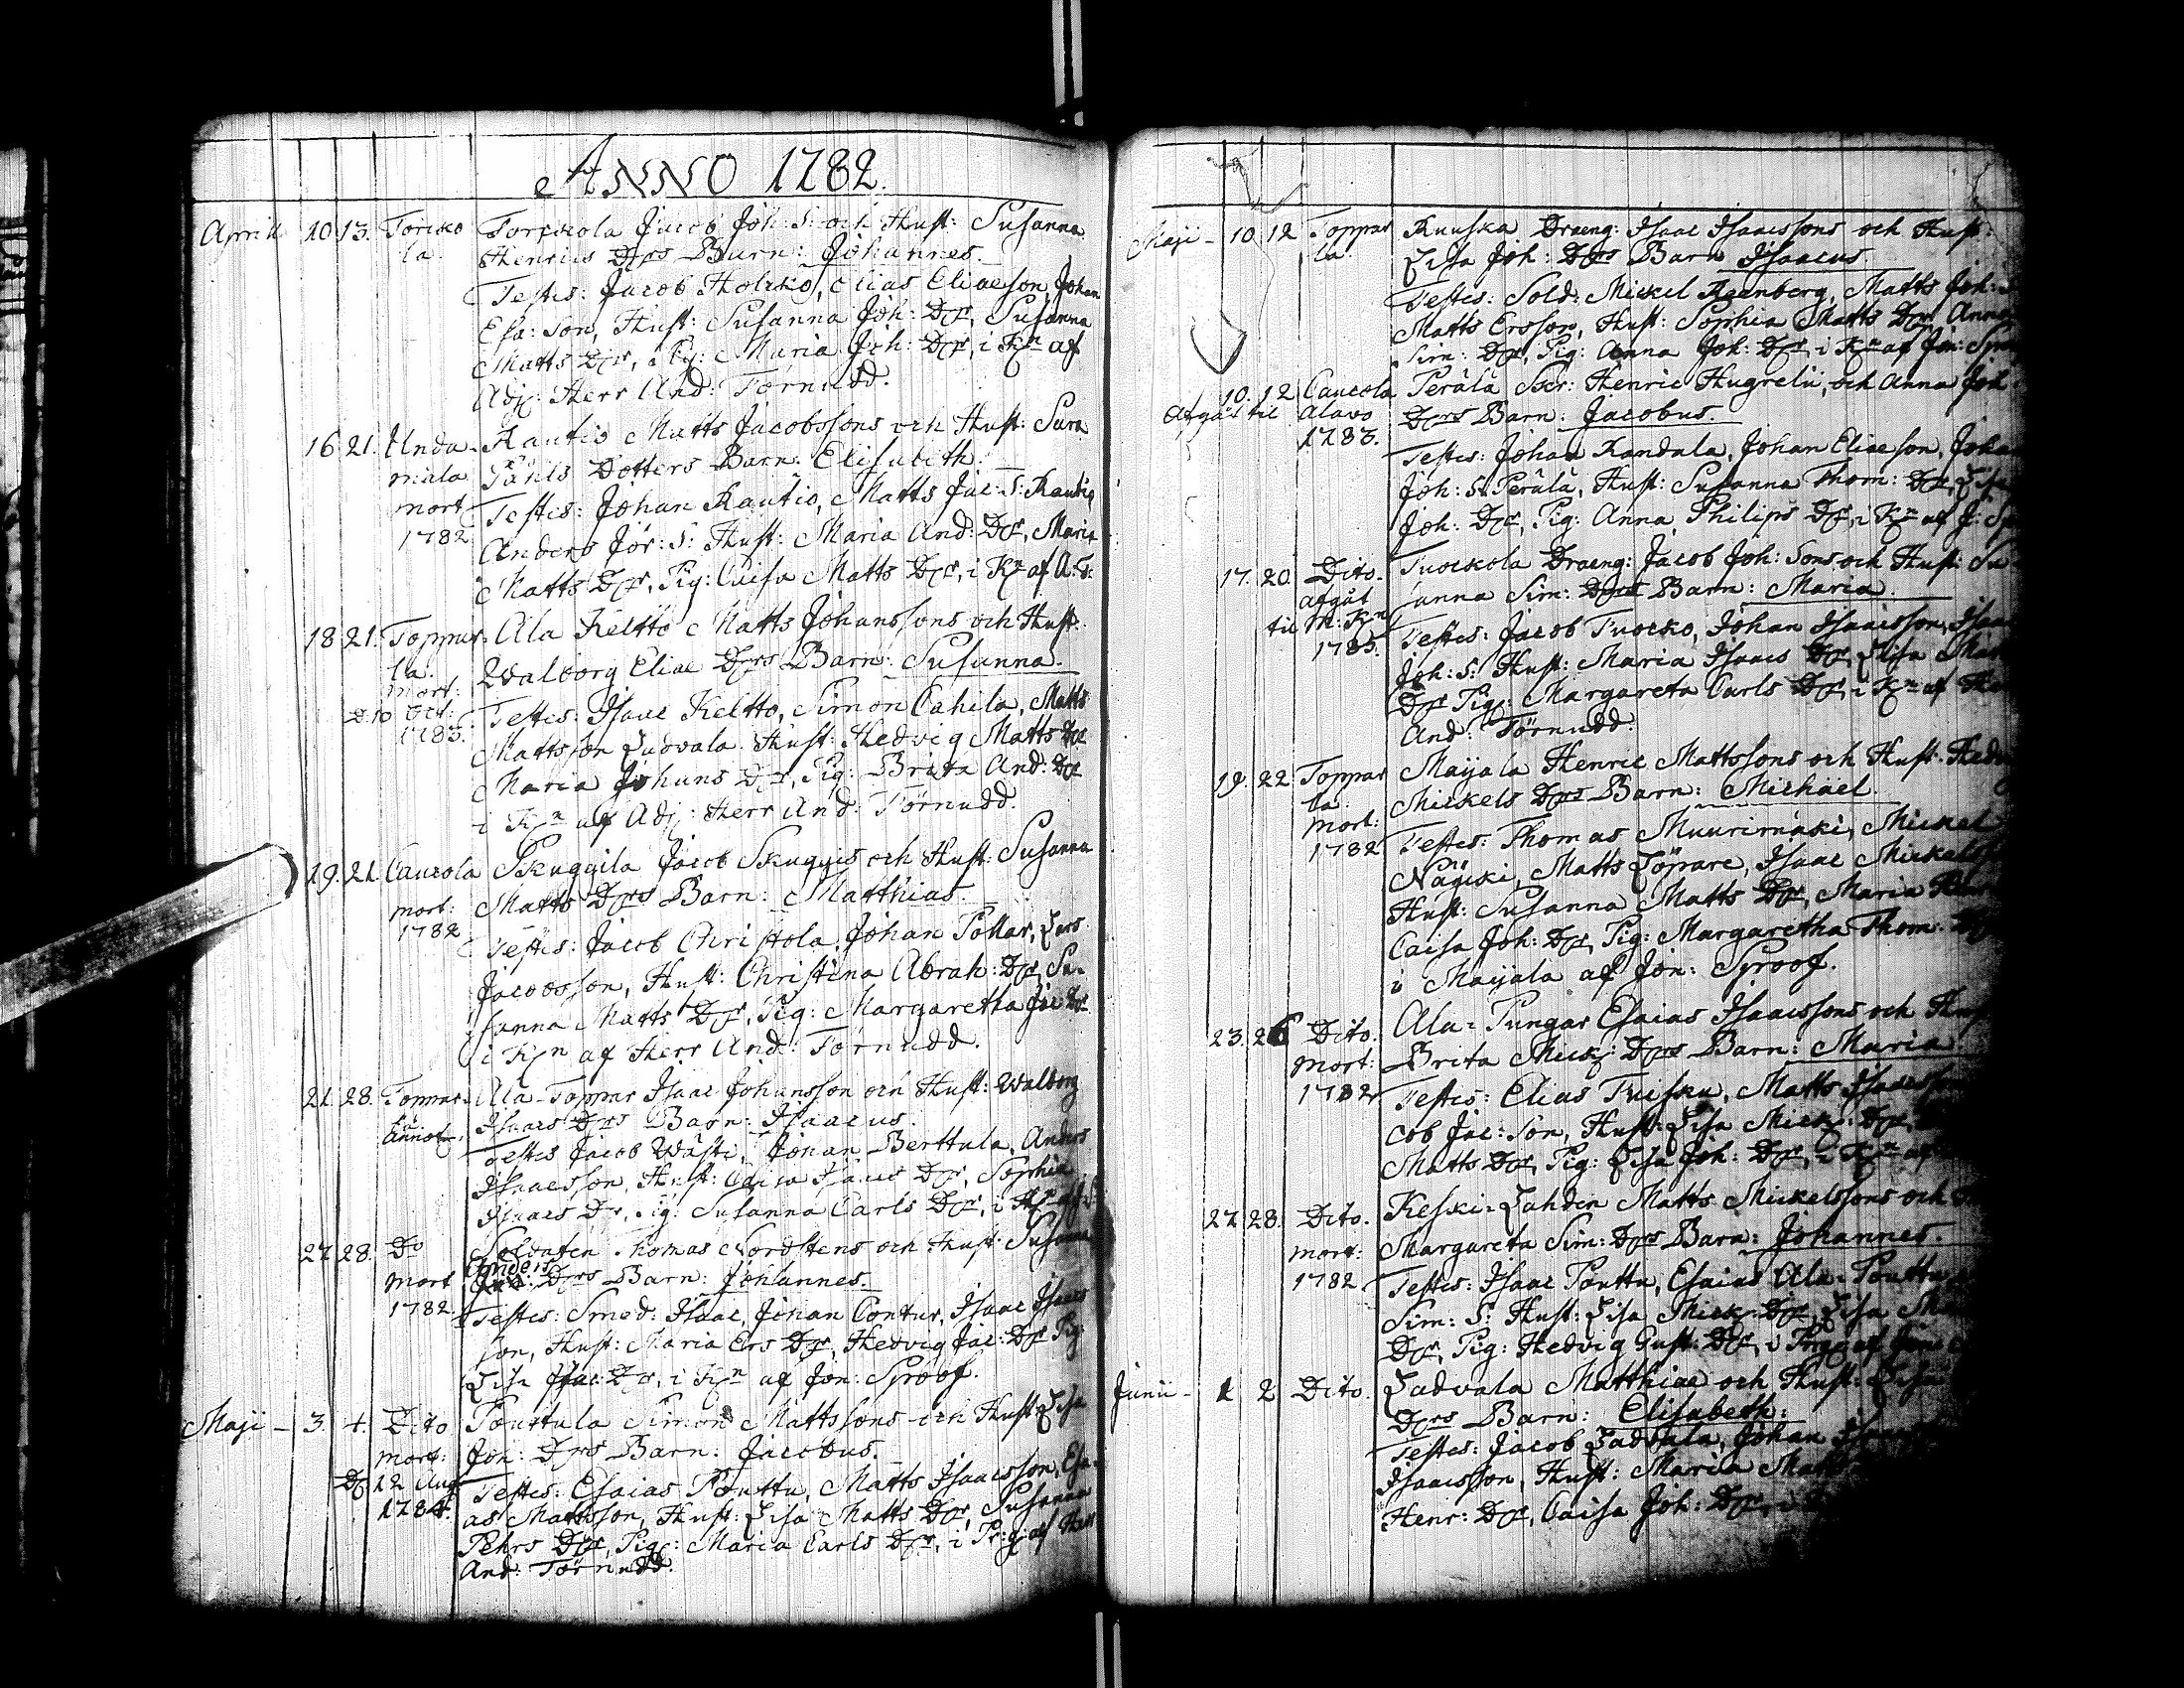 ANNO 1782.
Aprill 10 13. Torcko Torckola Jacob Joh: S: och Hust: Susanna
la. Henrics Dtrs Barn: Johannes.
Testes: Jacob Holcko, Elias Eliaeson, Johan
Esa: Son, Hust: Susanna Joh: Dtr, Susanna
Matts Dtr, Pig: Maria Joh: Dtr, i Kn af
Adj: Herr And: Törnudd.
16 21. Unda- Rautio Matts Jacobssons och Hust: Sara
mala Påhls Dotters Barn: Elisabeth.
mort Testes: Johan Rautio, Matts Jac: S: Rautio,
1782 Anders Jör: S: Hust: Maria And: Dtr, Maria
Matts Dtr, Pig: Caisa Matts Dtr, i Kn af A: T:
18 21. Toppar- Ala Keltto Matts Johanssons och Hust:
la. Walborg Eliae Dtrs Barn: Susanna.
mort:
D. 10 Oct: Testes: Isaac Keltto, Simon Cahila, Matts
1783. Mattsson Ladvala Hust: Hedvig Matts Dtr
Maria Johans Dtr, Pig: Brita And: Dtr
i Kn af Adj: Herr And: Törnudd.
19. 21 Caucola Skuggila Jacob Skuggis och Hust: Susanna
mort: Matts Dtrs Barn: Matthias.
1782 Testes: Jacob Christola, Johan Pollar, Lars
Jacobsson, Hust: Christina Abrah: Dtr, Su-
sanna Matts Dtr, Pig: Margaretha Jac Dtr
i Kn af Herr And: Törnudd.
21. 28. Toppar- Ala-Toppar Isaac Johansson och Hust: Walborg
la. Isaacs Dtrs Barn: Isaacus.
annot. Testes Jacob Wästi, Johan Berttula, Anders
Isaacsson, Hust: Caisa Isaacs Dtr, Sophia
Isaacs Dr, Pig: Susanna Carls Dtr, i Kn af
27 28. Do Soldaten Thomas Nordstens och Hust: Susanna
Anders
mort Dtrs Barn: Johannes.
1782. Testes: Smed: Isaac, Johan Contur, Isaac Isaacs
son, Hust: Maria Ers Dtr, Hedvig Jac: Dtr Pig:
Lisa Isac: Dtr, i Kn af Jon: Sproof.
Maji - 3. 4. Dito Pouttula Simon Mattssons och Hust Lisa
mort: Joh: Dtrs Barn: Jacobus.
D. 12 Aug Testes: Esaias Pouttu, Matts Isaacsson, Esa-
1784. as Mattsson, Hust: Lisa Matts Dtr, Susanna
Pehrs Dtr, Pig: Maria Carls Dtr, i Pr:g: af Herr
And: Törnudd.
Maji - 10 12 Toppar Ruuska Draeng: Isaac Isaacssons och Hust:
la. Lisa Joh: Dtrs Barn Isaacus.
Testes: Sold: Mickel Reenberg, Matts Joh: S
Matts Ersson, Hust: Sophia Matts Dtr Anna
Sim: Dtr, Pig: Anna Joh: Dtr, i Kn af Jon: Spro
10. 12 Caucola Perälä Henric Hugrelii, och Anna Joh
Afgåt til Alavo Dtrs Barn: Jacobus.
1783. Testes: Johan Kandala, Johan Eliaeson, Joha
Joh: S: Perälä, Hust: Susanna Thom: Dtr, Lisa
Joh: Dtr, Pig: Anna Philips Dtr, i Kn af J: Sp
17. 20. Dito. Tuorkola Draeng: Jacob Joh: Sons och Hust: Su-
afgåt sanna Sim: Dtrs Barn: Maria.
til M: Kn Testes: Jacob Tuorko, Johan Isaacsson, Isaac
1785. Joh: S: Hust: Maria Isaacs Dtr, Lisa
Dtr Pig: Margareta Carls Dtr, i Kn af Her
And: Törnudd.
19. 22. Toppar Maijala Henric Mattssons och Hust: Hedv
la. Mickels Dtrs Barn: Michäel.
mort: Testes: Thomas Muurimäki, Mickel
1782 Näycki, Matts Löpare, Isaac Mickels
Hust: Susanna Matts Dtr, Maria
Caisa Joh: Dtr, Pig: Margaretha Thom: Dtr
i Maijala af Jon: Sproof.
23. 26 Dito. Ala-Pungar Esaias Isaacssons och Hust
mort: Brita Mick: Dtrs Barn: Maria
1782 Testes: Elias Tuisku, Matts Isaacsson
cob Jac: Son, Hust: Lisa Mick: Dtr,
Matts Dtr, Pig: Lisa Joh: Dtr, i Kn af
27 28. Dito. Keski-Lahden Matts Mickelssons och
mort: Margareta Sim: Dtrs Barn: Johannes.
1782 Testes: Isaac Pouttu, Esaias Ala-Pouttu
Sim: S: Hust: Lisa Mick: Dtr, Lisa
Dtr, Pig: Hedvig Gust: Dtr, i Prg: af Jon:
Junii - 1 2 Dito. Ladvala Matthiae och Hust: Lisa
Dtrs Barn: Elisabeth:
Testes: Jacob Ladvala, Johan
Isaacsson, Hust: Maria Matt
Henr: Dtr, Caisa Joh: Dtr, i